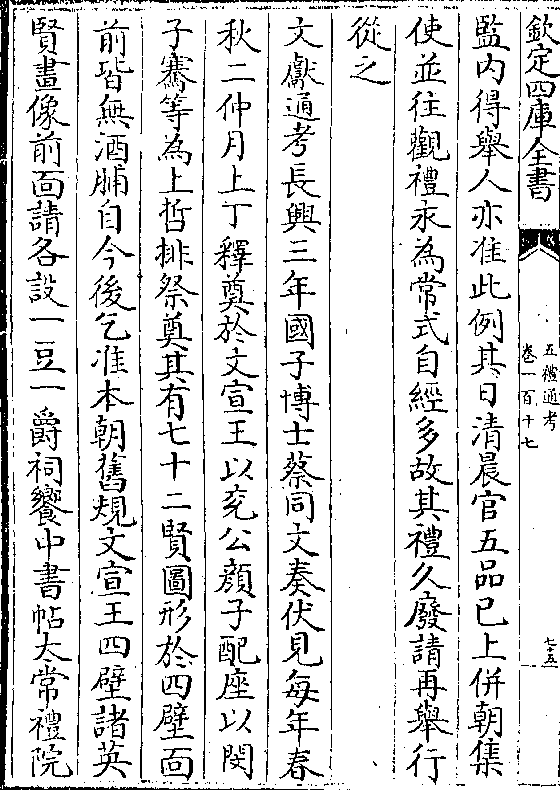 欽定四庫全書
五禮通考
卷一百十七
七十五
監内得舉人亦准此例其日清晨官五品已上併朝集
使並往觀禮永為常式自經多故其禮久廢請再舉行
從之
文獻通考長興三年國子博士蔡同文奏伏見每年春
秋二仲月上丁釋奠於文宣王以兖公顔子配座以閔
子騫等為上哲排祭奠其有七十二賢圖形於四壁面
前皆無酒脯自今後乞准本朝舊規文宣王四壁諸英
賢畫像前面請各設一豆一爵祠饗中書帖太常禮院